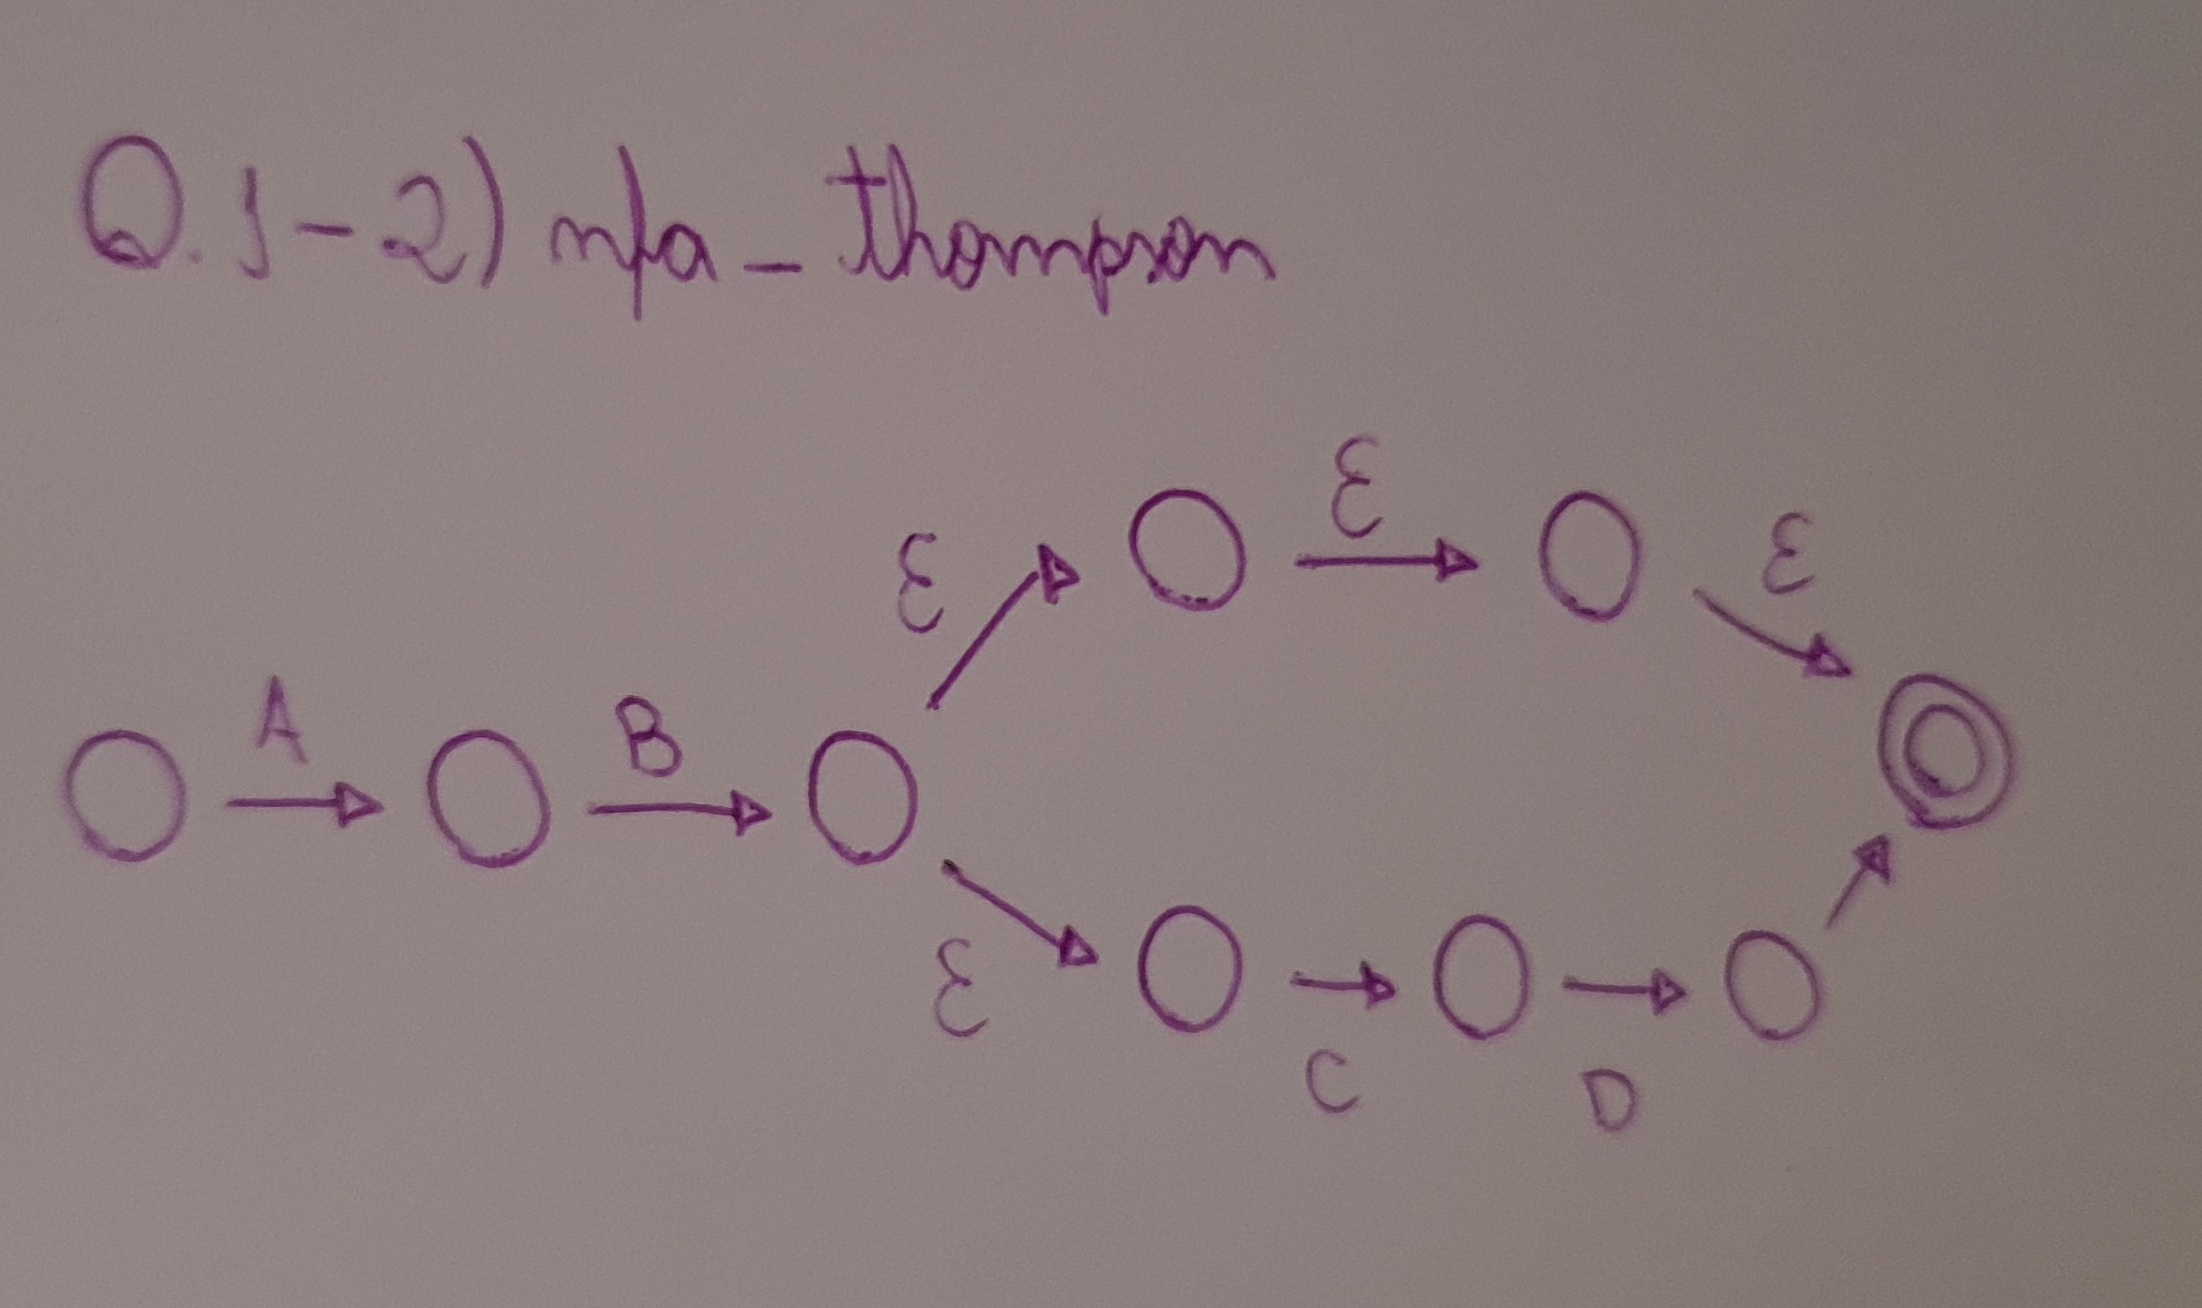 Q.1-2) nfa_thompson
ε
ε
ε
A
B
ε
C
D